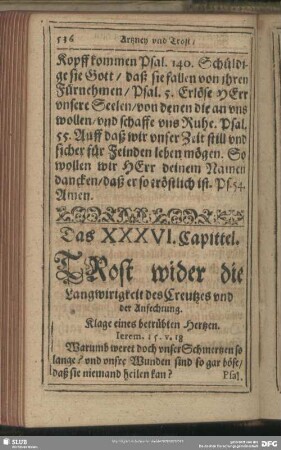 536 Artzney vnd Trost/
Kopff kommen Psal. 140. Schüldi-
ge sie Gott / daß sie fallen von ihren
Fürnehmen / Psal. 5. Erlöse HErr
vnsere Seelen / von denen die an vns
wollen / vnd schaffe vns Ruhe. Psal.
55. Auff daß wir vnser Zeit still vnd
sicher für Feinden leben mögen. So
wollen wir HErr deinem Namen
dancken / daß er so tröstlich ist. Ps. 54.
Amen.
Das XXXVI. Capittel.
TRost wider die
Langwirigkeit des Creutzes vnd
der Anfechtung.
Klage eines betrübten Hertzen.
Ierem. 15. v. 18
Warumb weret doch vnser Schmertzen so
lange? vnd vnsre Wunden sind so gar böse /
daß sie niemand heilen kan?
Psal.
SLUB
DFG